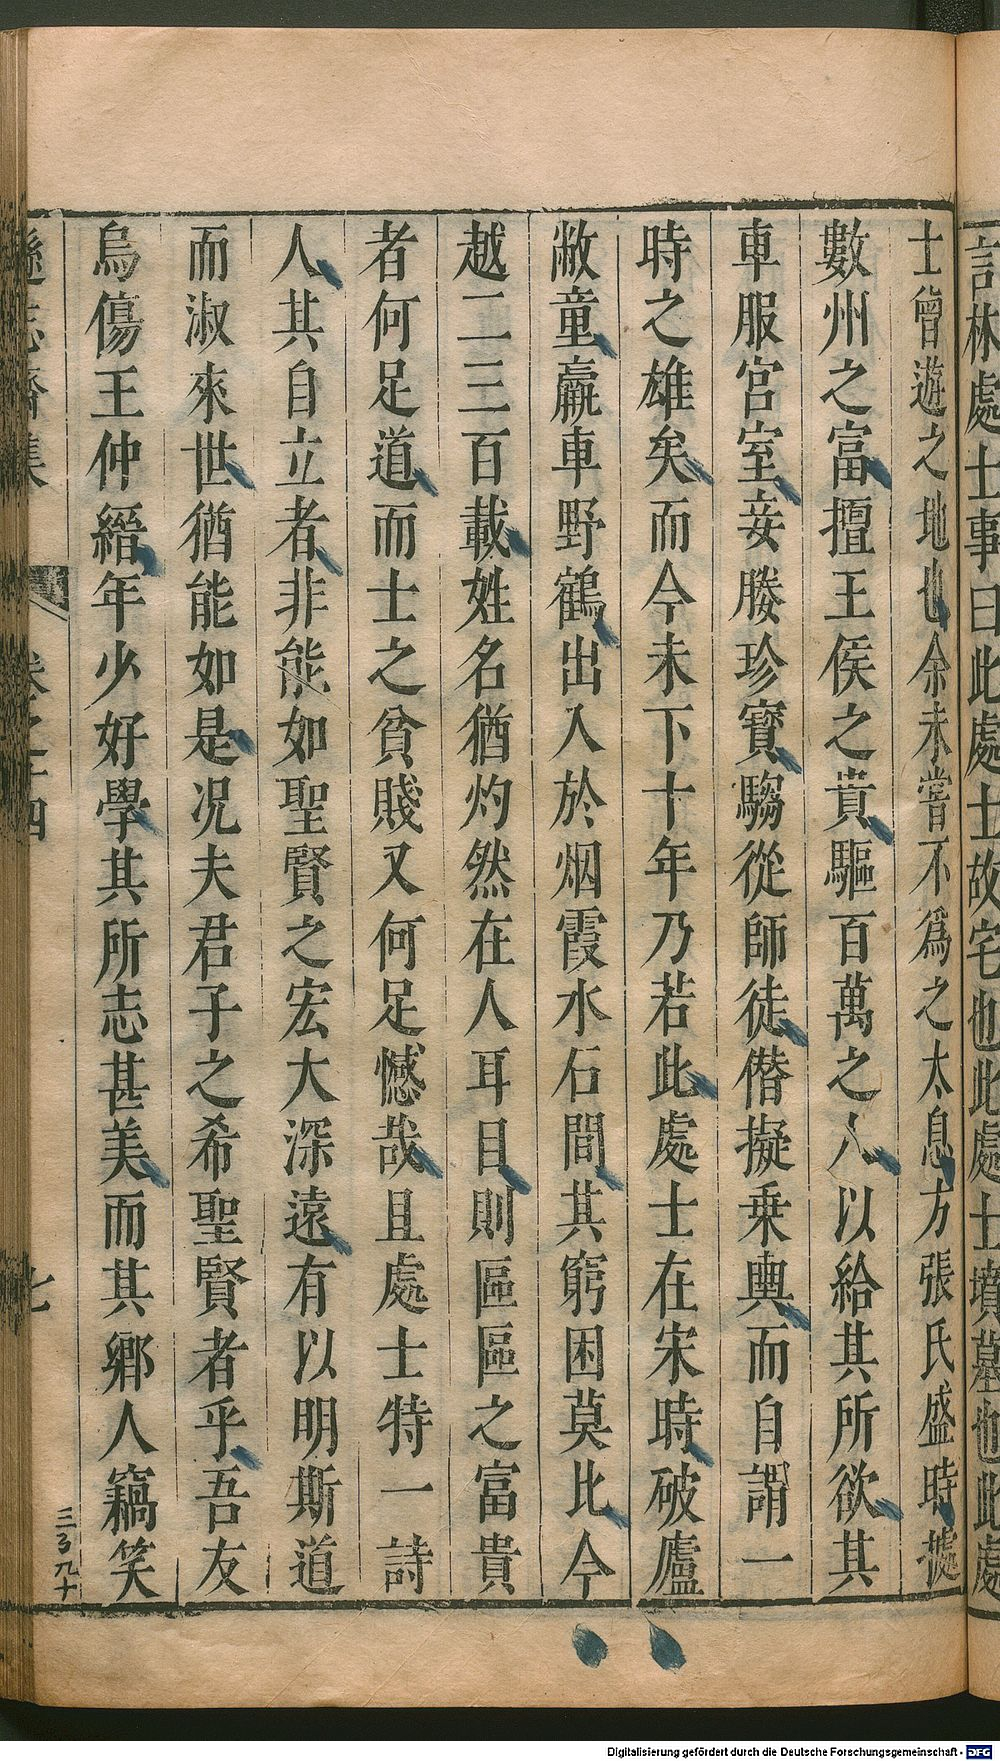 言林處士事曰此處士故宅也此處士墳墓也此處
士曾遊之地也余未嘗不爲之太息方張氏盛時據
數州之富擅王侯之貴驅百萬之人以給其所欲其
車服宮室妾媵珍寶騶從師徒僣擬乗輿而自謂一
時之雄矣而今未下十年乃若此處士在宋時破廬
敝童羸車野鶴出入於烟霞水石間其窮困莫比今
越二三百載姓名猶灼然在人耳目則區區之富貴
者何足道而士之貧賤又何足憾哉且處士特一詩
人其自立者非能如聖賢之宏大深遠有以明斯道
而淑來世猶能如是况夫君子之希聖賢者乎吾友
烏傷王仲縉年少好學其所志甚美而其鄉人竊笑
遜志齋集 卷之十四 七
三百九十
Digitalisierung gefördert durch die Deutsche Forschungsgemeinschaft - DFG